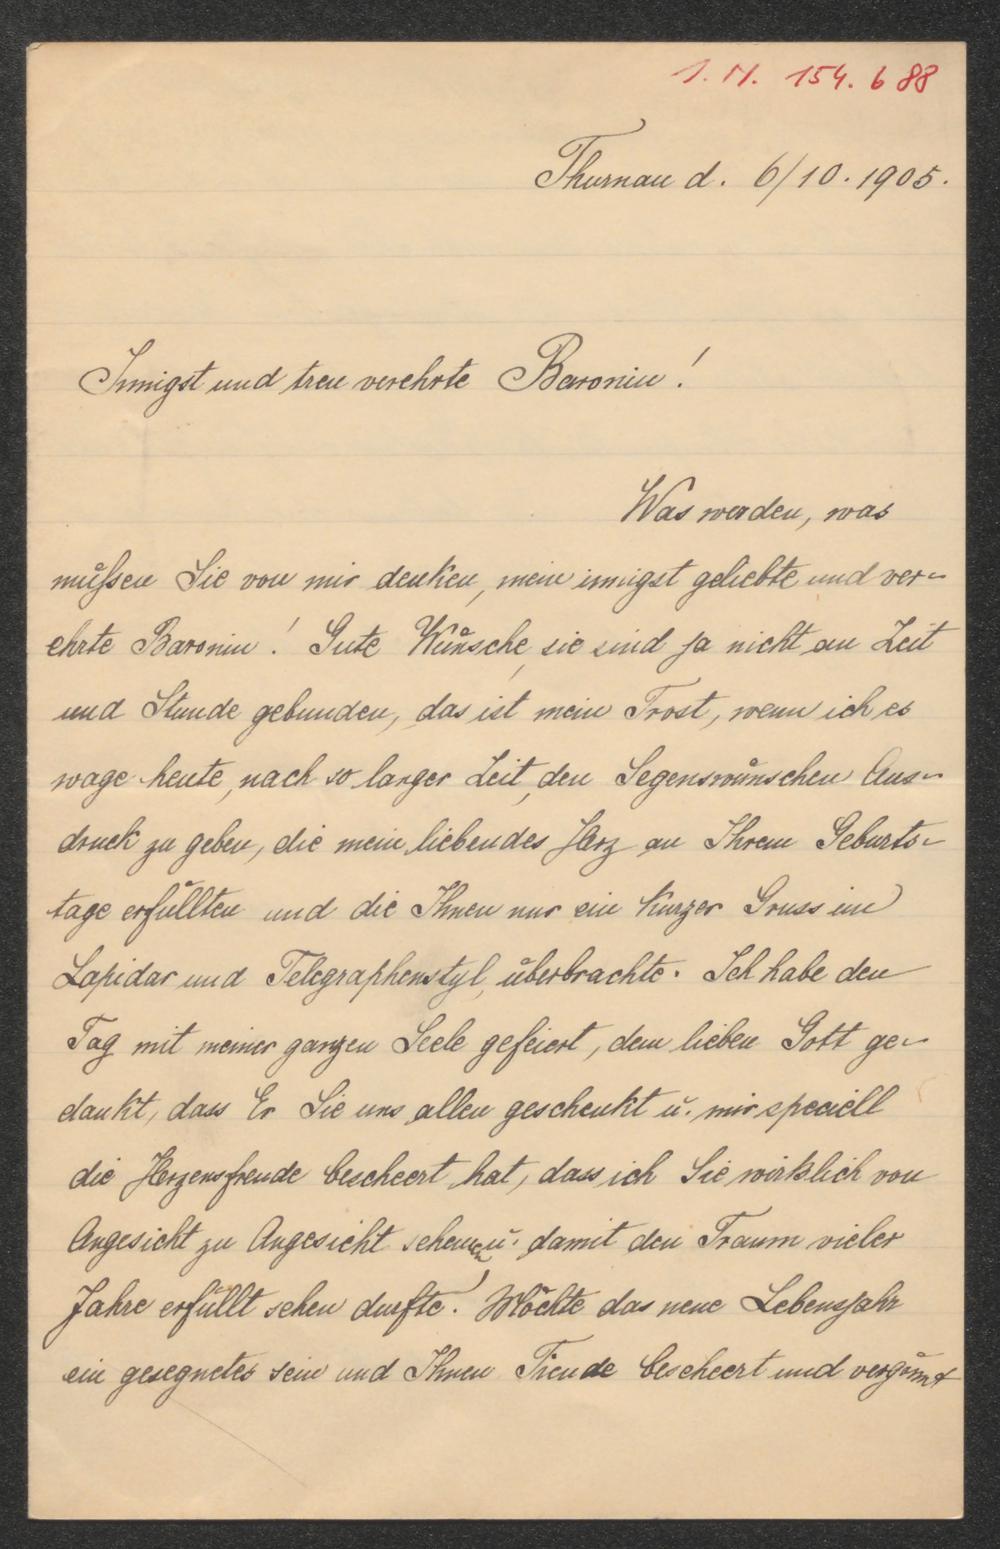 I. N. 154.688
Thurnau d. 6/10. 1905.
Innigst und treu verehrte Baronin!
Was werden, was
müßen Sie von mir denken, mein innigst geliebte und ver-
ehrte Baronin! Gute Wünsche, sie sind ja nicht an Zeit
und Stunde gebunden, das ist mein Trost, wenn ich es
wage heute, nach so langer Zeit, den Segenswünschen Aus-
druck zu geben, die mein liebendes Herz an Ihrem Geburts-
tage erfüllten und die Ihnen nur ein kurzer Gruss im
Lapidar und Telegraphenstyl, überbrachte. Ich habe den
Tag mit meiner ganzen Seele gefeiert, dem lieben Gott ge-
dankt, dass Er Sie uns allen geschenkt u. mir speciell
die Herzensfreude bescheert hat, dass ich Sie wirklich von
Angesicht zu Angesicht sehen u. damit den Traum vieler
Jahre erfüllt sehen durfte! Möchte das neue Lebensjahr
ein gesegnetes sein und Ihnen Freude bescheert und vergönnt